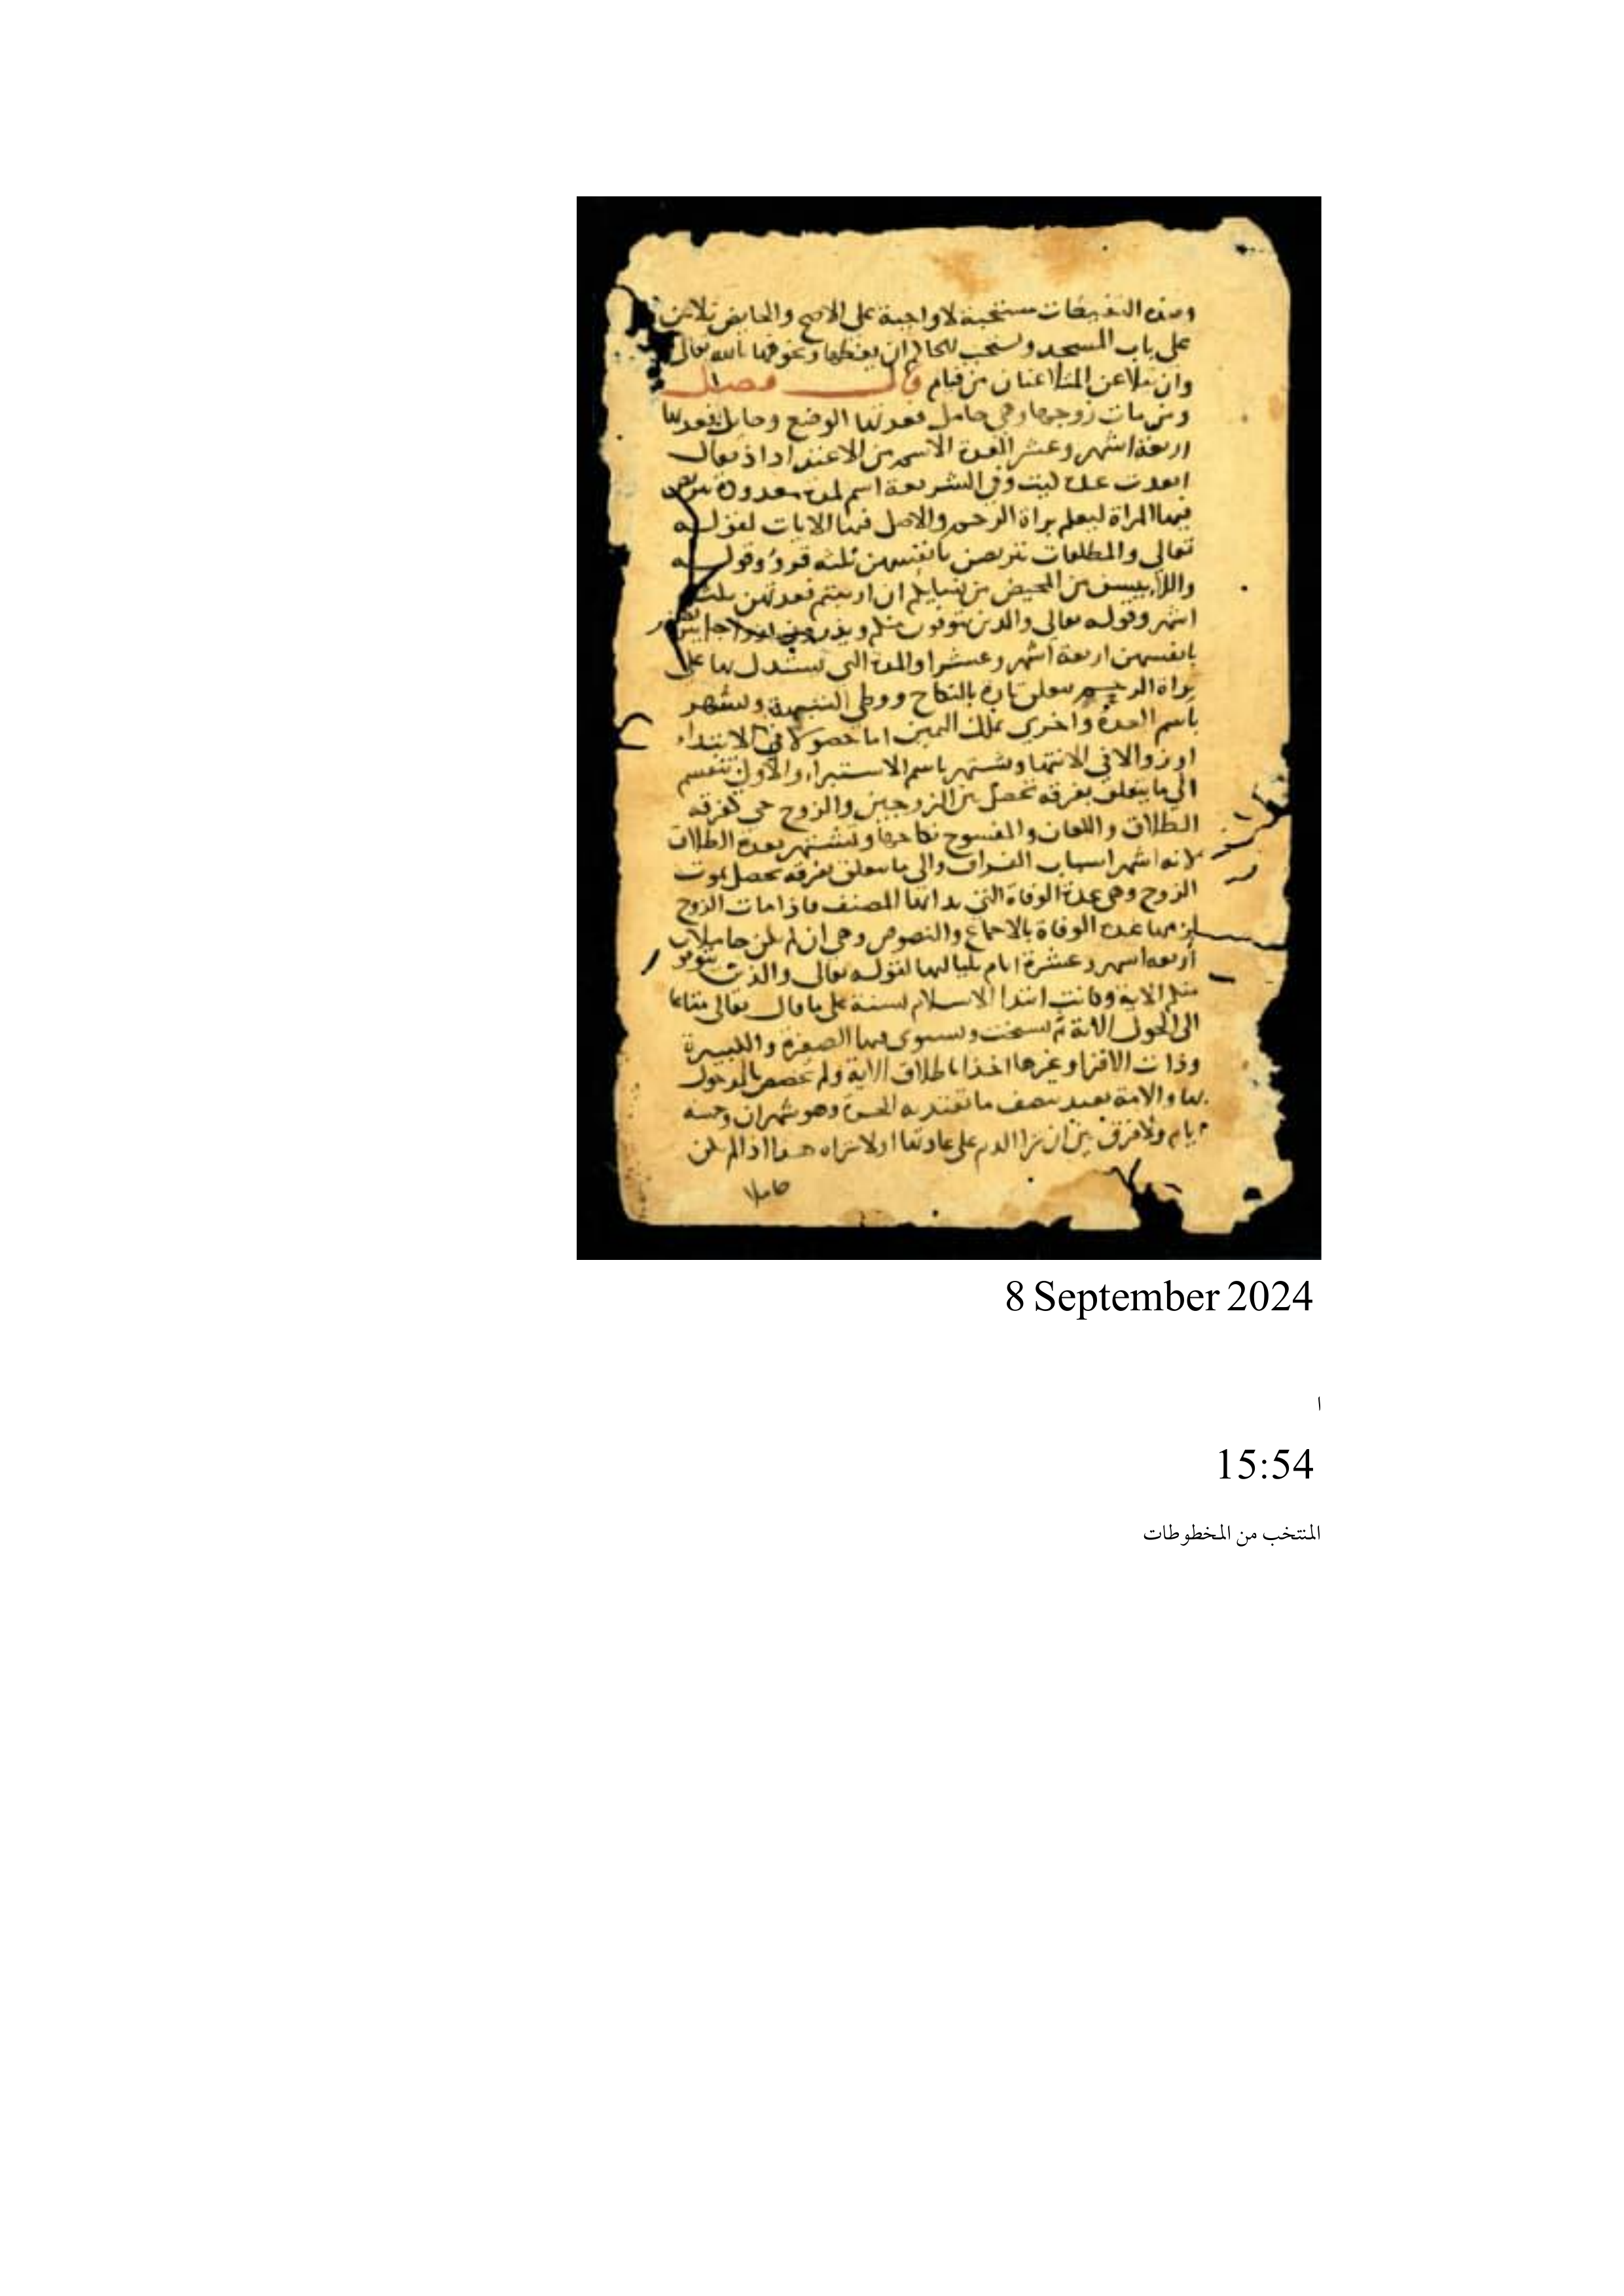 وهذه التغليظات مستحبة لا واجبة على الاصح والحايض تلاعن
على باب المسجد ويستحب للحاكم ان يعظهما ويخوفهما بالله تعالى
وان يتلاعن المتلاعنان من قيام قال فصل
ومن مات زوجها وهي حامل فعدتها الوضع وحايل فعدتها
اربعة اشهر وعشر العدة الاسم من الاعتداد اذ يقال
وفي الشريعة اسم لمدة معدودة تتربص
فيها المراة ليعلم براة الرحم والاصل فيها الايات لقوله
تعالى والمطلقات يتربصن بانفسهن ثلثه قروء وقوله
واللآييسن من المحيض من نسايكم ان ارتبتم فعدتهن ثلثة
اشهر وقوله تعالى والذين يتوفون منكم ويذرون ازواجا يتربصن
بانفسهن اربعة اشهر وعشرا والمدة التي يستدل بها على
براة الرحم تتعلق تارة بالنكاح ووطى الشبهة وتشتهر
باسم العدة واخرى بملك اليمين اما حصولا في الابتداء
او زوالا في الانتها وتشتهر باسم الاستبراء والاول ينقسم
الى ما يتعلق بفرقه تحصل بين الزوجين والزوج حي كفرقه
الطلاق واللعان والمفسوخ نكاحها وتشتهر بعدة الطلاق
لانه اشهر اسباب الفراق والى ما يتعلق بفرقه تحصل بموت
الزوج وهي عدة الوفاة التي بدا بها المصنف فاذا مات الزوج
لزمها عدة الوفاة بالاجماع والنصوص وهي ان لم تكن حاملا
أربعه اشهر وعشرة ايام بلياليها لقوله تعالى والذين يتوفون
منكم الاية وكانت ابتدا الاسلام لسنة على ما قال تعالى متاعا
الى الحول الاية ثم نسخت ويستوى فيها الصغيرة والكبيرة
وذات الاقرا وغيرها اخذا باطلاق الاية ولم تخصص بالمدخول
بها والامة تعتد بنصف ما تعتد به الحرة وهو شهران وخمسة
ايام ولا فرق بين ان ترا الدم على عادتها او لا تراه هذا اذا لم تكن
حاملا
8 September 2024
ا
15:54
المنتخب من المخطوطات